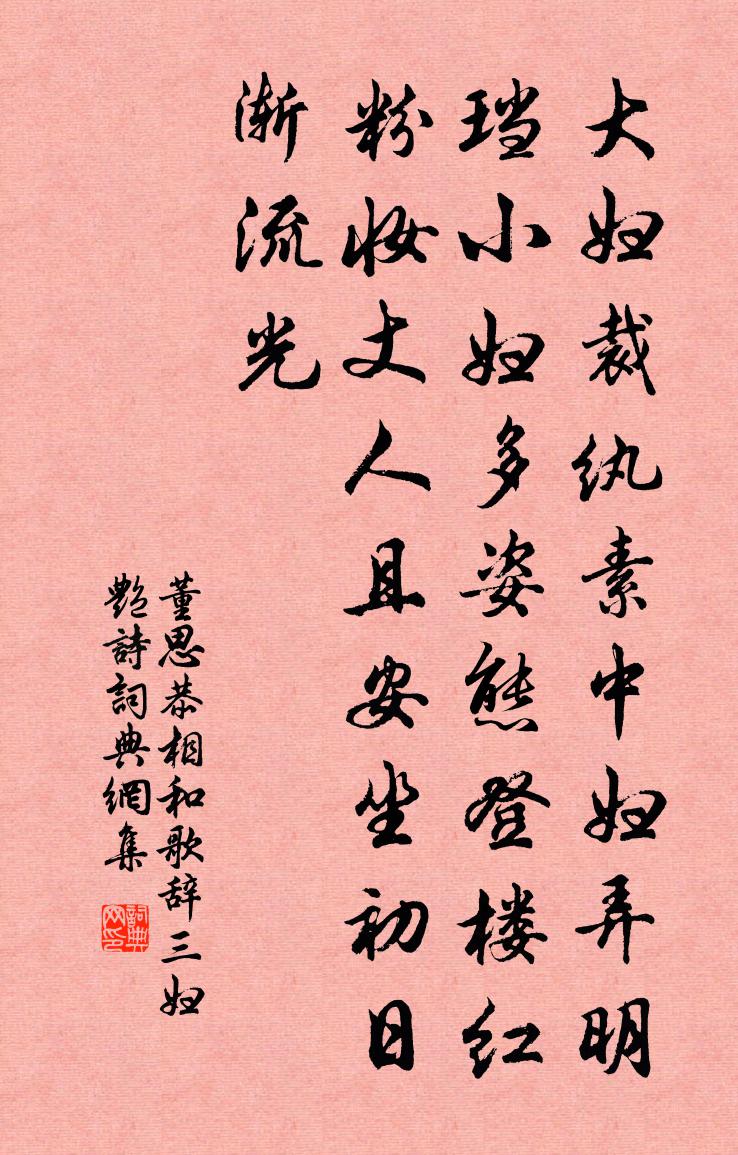 大妇裁纨素中妇弄明
珰小妇多姿態登楼红
粉妆丈人且安坐初日
渐流光
董思恭相和歌辞三妇
艷詩詞典網集
詞典
网印